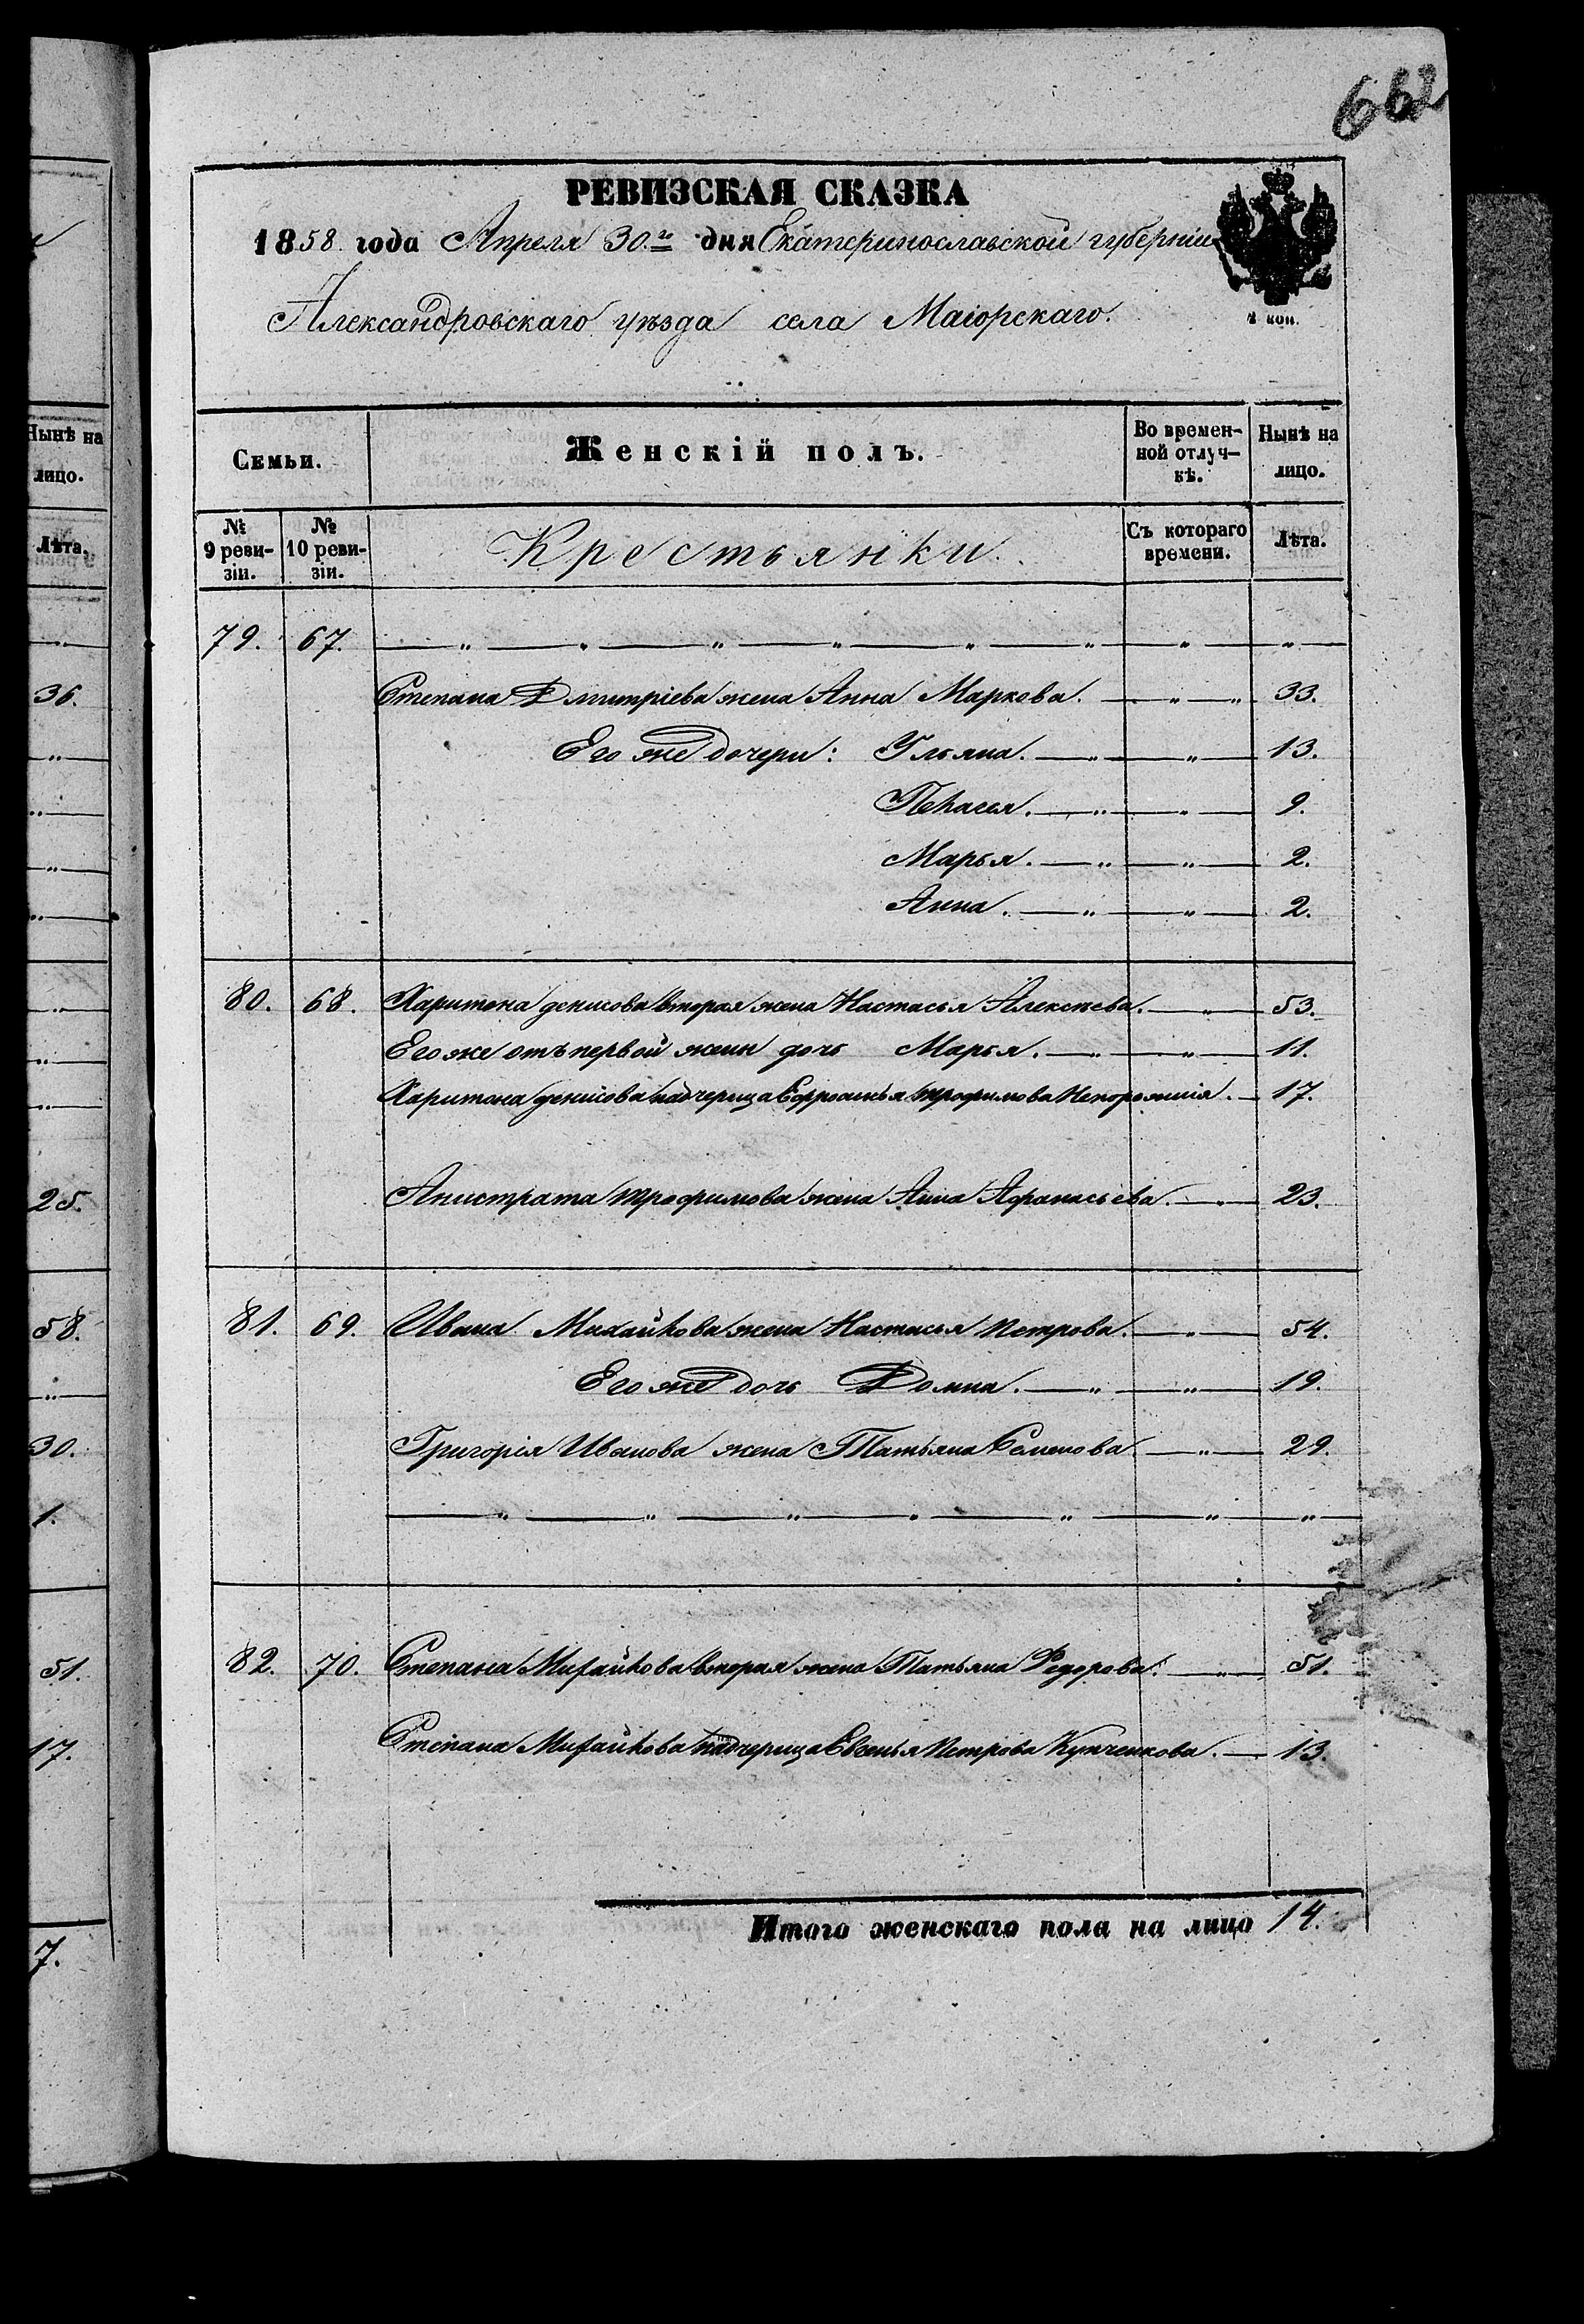 662
РЕВИЗСКАЯ СКАЗКА
1858. года Апреля 30.го дня Екатеринославской губерніи
Александровскаго уѣзда села Маіорскаго.
коп.
Семьи.
Женскій полъ.
Во времен-
ной отлуч-
кѣ.
Нынѣ на
лицо.
№ 9 реви-
зіи.
№ 10 реви-
зіи.
Крестьянки.
Съ котораго
времени.
Лѣта.
79. 67. — „ — „ — „ — „ — „ — „ — „ — „ —
Степана Дмитріева жена Анна Маркова. — „ — „ 33.
Его же дочери: Ульяна. — „ — „ — 13.
— „ — „ — 9.
Марья. — „ — „ — 2.
Анна. — „ — „ — 2.
80. 68. Харитона денисова вторая жена Настасья Алексѣева. — „ — 53.
Его же отъ первой жены дочь Марья. — „ — „ — 11.
Харитона денисова падчерица трофимова — 17.
трофимова жена Анна Афанасьева. — „ — 23.
81. 69. Ивана Михайлова жена Настасья Петрова. — „ — 54.
Его же дочь Домна. — „ — „ — 19.
Григорія Иванова жена Татьяна Семенова. — „ — 29.
— „ — „ — „ — „ — „ — „ — „ —
82. 70. Степана Михайлова вторая жена Татьяна Федорова. — „ — 51.
Степана Михайлова падчерица Петрова — 13.
Итого женскаго пола на лицо 14.
Нынѣ на
лицо.
Лѣта.
36.
25.
58.
30.
1.
51.
17.
7.